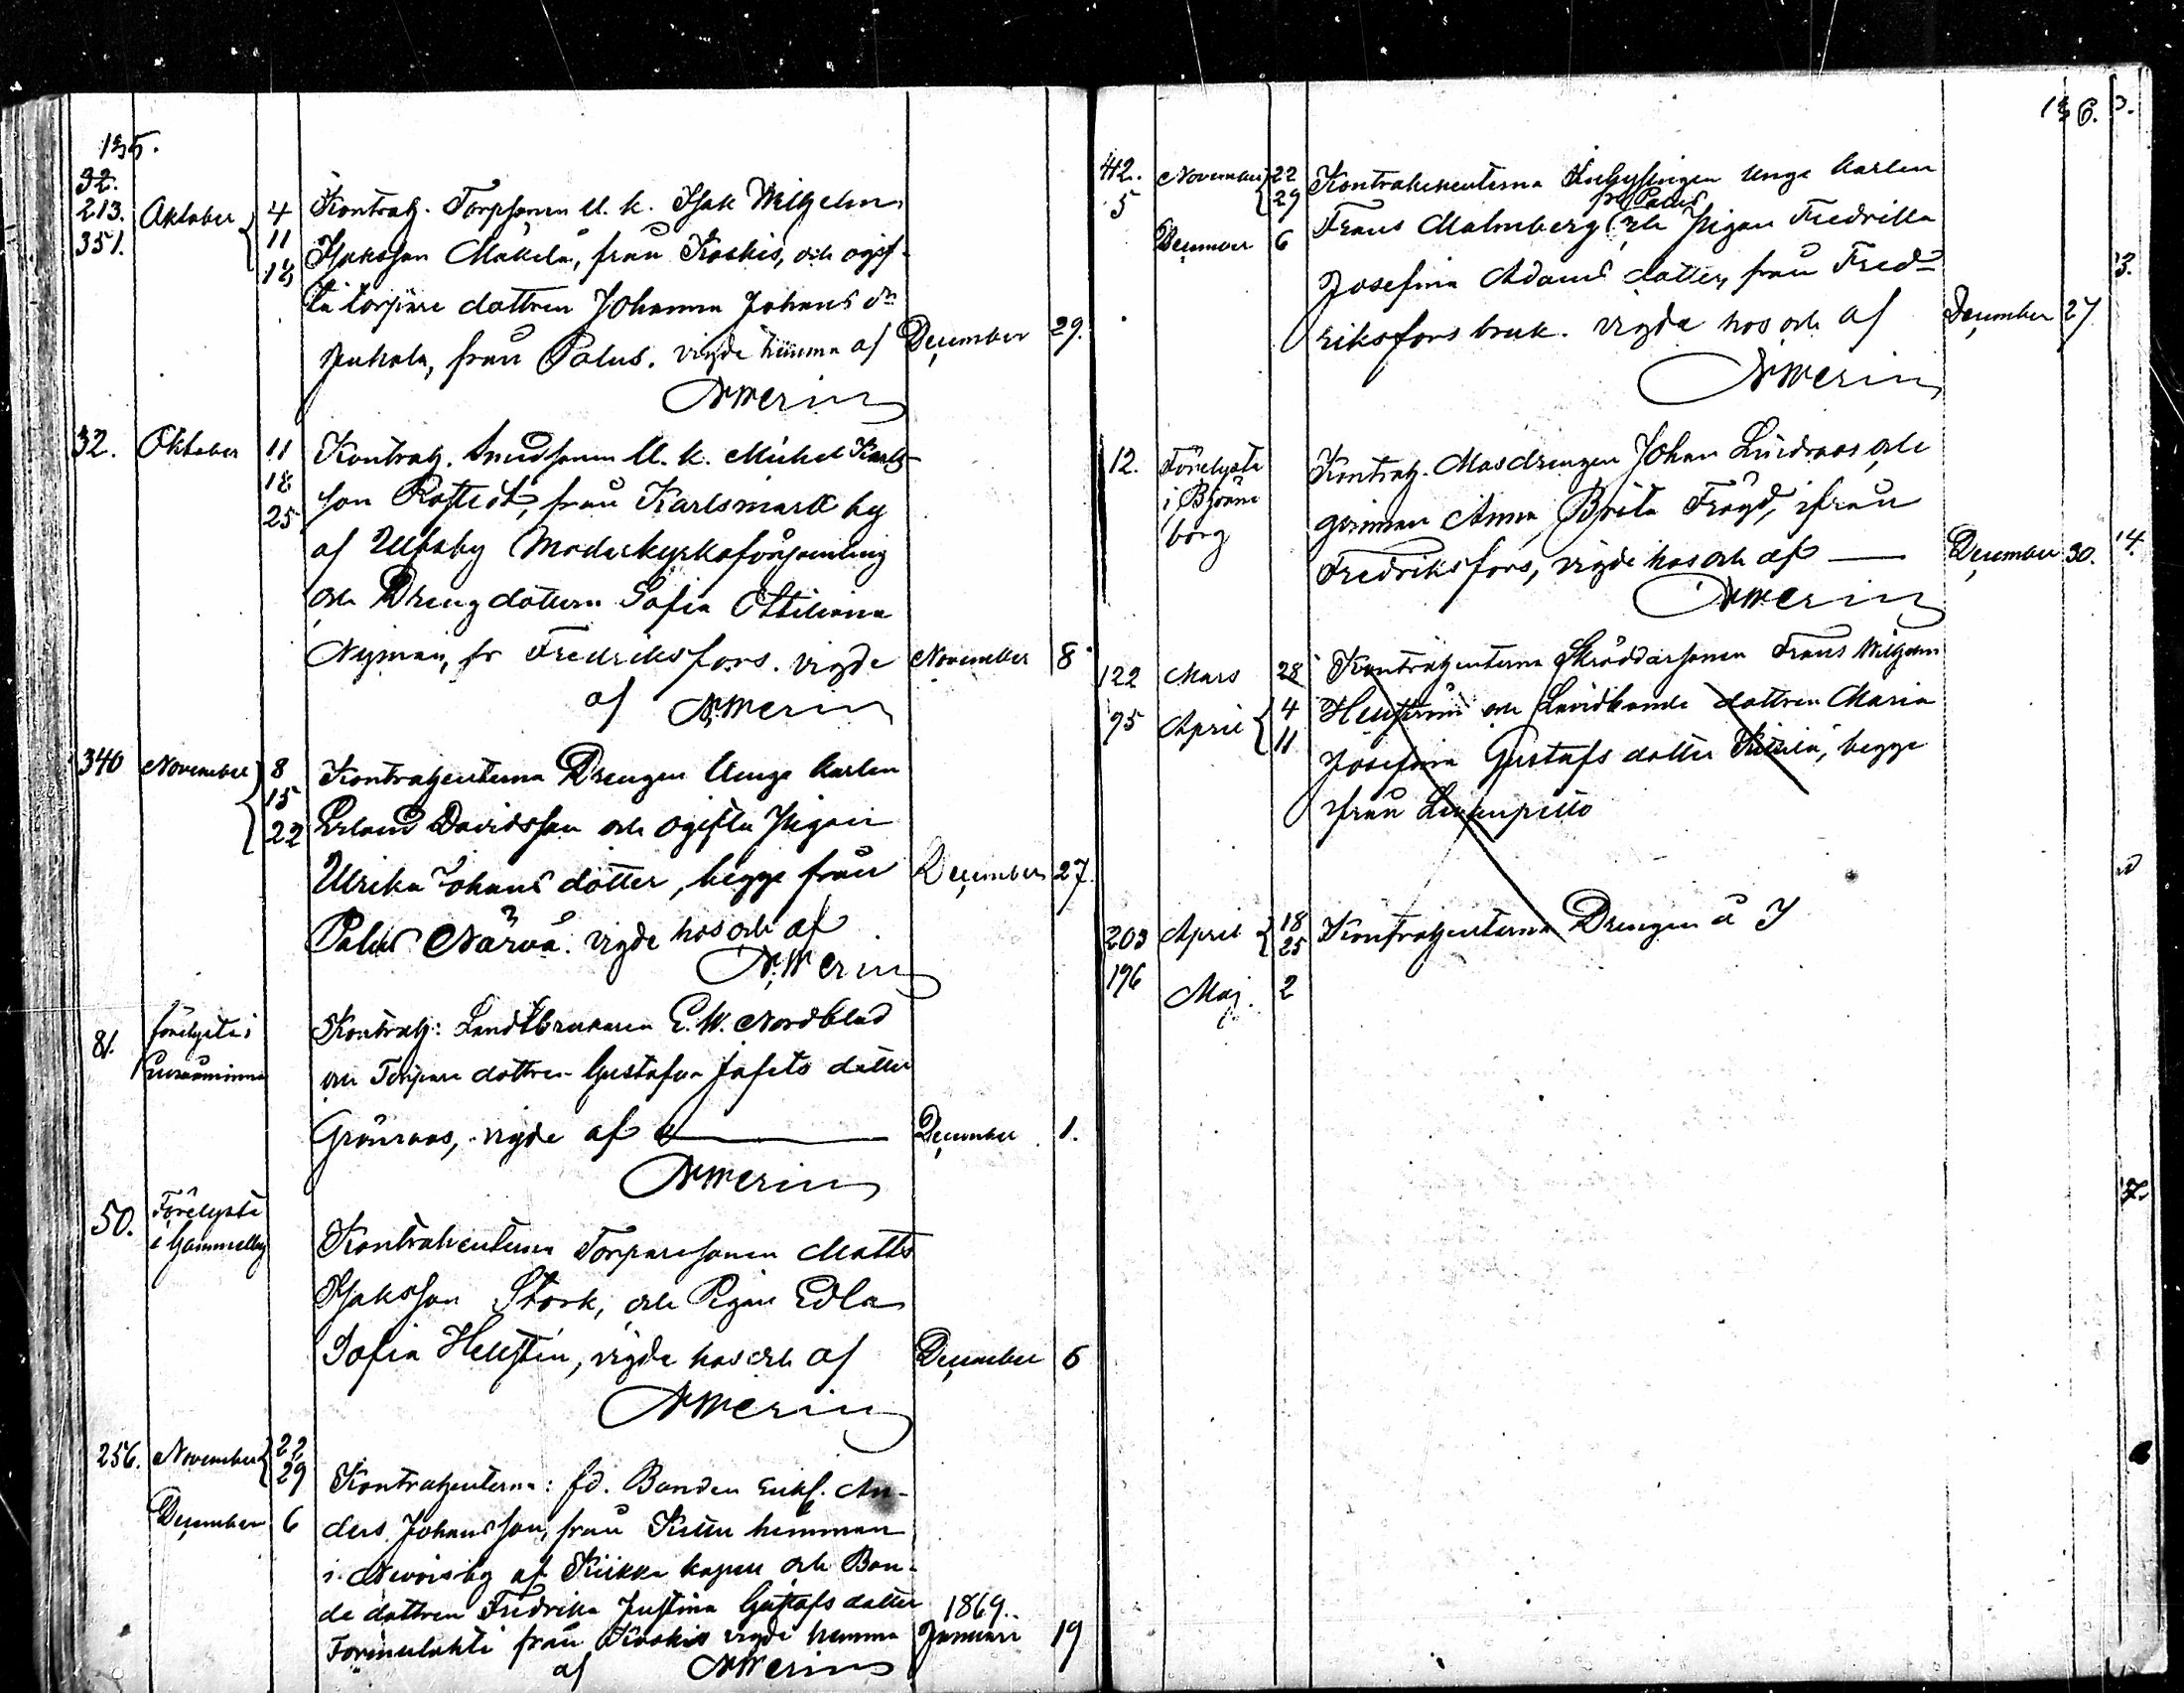 135.
32.
213.
351.
Oktober
4
11
18
Kontrah. Torpsonen U. k. Isak Wilhelm
Isaksson Mäkelä, från Koskis, och ogif-
ta torpare dottren Johanna Johans dr
Juhola, från Palus. vigde hemma af
December 29.
NWerin
32. Oktober
11
18
25
Kontrah. Smedsonen U. k. Mickel Karls-
son Rostedt, från Karlsmark by
af Ulfsby Moderkyrkoförsamling
och Drengdottern Sofia Ottiliana
Nyman, fr Fredriksfors. vigde
November 8
af NWerin
340 November
8
15
22
Kontrahenterna Drengen Unge karlen
Erland Davidsson och ogifta Pigan
Ulrika Johans dotter, begge från
December 27.
Palus Närvä. vigde hos och af
N.Werin
81. förelyste i
Kontrah: Landtbrukaren E. W. Nordblad
och Torpare dottren Gustafva Jafets dotter
Grönroos, vigde af
December 1.
NWerin
50. Förelyste
i Gammelby
Kontrahenterna Torparesonen Matts
Isaksson Stork, och Pigan Edla
Sofia Hellsten, vigde hos och af
December 6
NWerin
256. November
22
29
December 6
Kontrahenterna: fd. Bonden Enkl. An-
ders Johansson, från hemman
i by af Kiikka kapell och Bon-
de dottren Fredrika Justina Gustafs dotter
Tormulahti från Koskis vigde hemma
1869.
Januari 19
af NWerin
136.
42. November 22
5
29
December 6
Kontrahenterna Inhysingen Unge karlen
fr Palus
Frans Malmberg och Pigan Fredrika
Josefina Adams dotter, från Fred-
riksfors bruk. vigde hos och af
December 27
NWerin
12. Förelyste
i Björne
borg
Kontrah. Masdrengen Johan Lindroos och
Anna Brita Fröyd, ifrån
Fredriksfors, vigde hos och af
December 30.
NWerin
122 Mars 28
95 April
4
11
Kontrahenterna Skräddarsonen Frans Wilhelm
Hellström och Landbonde dottren Maria
Josefina Gustafs dotter begge
ifrån
203 April
18
25
196
Maj. 2
Kontrahenterna Drengen å I